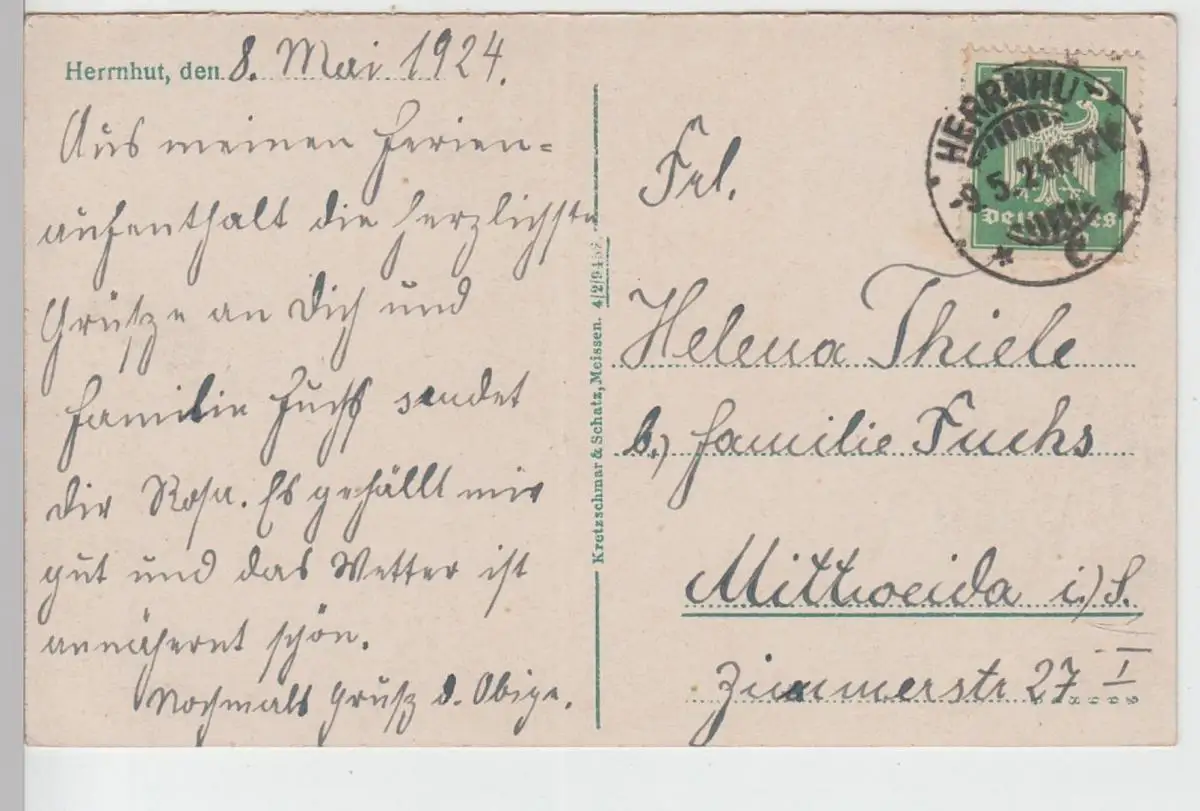 Herrnhut, den 8. Mai 1924.
Aus meinen Ferien-
aufenthalt die herzlichste
Grüsze an Dich und
Familie Fuchs sendet
dir Rosa. Es gefällt mir
gut und das Wetter ist
annähernt schön.
Nochmals Grusz d. Obige.
Kretzschmar & Schatz, Meissen. 4/2/9452
HERRNHUT
9.5.24
C
5
Deutsches
Frl.
Helena Thiele
b) Familie Fuchs
Mittweida i./S.
Zimmerstr 27 I